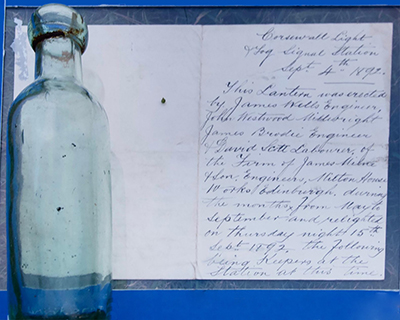 Corsewall Light
& Fog Signal Station
Sept 4th 1892.
This Lantern was erected
by James Wells Engineer
John Westwood Millwright
James Brodie Engineer
& David Scott Labourer, of
the Firm of James Milne
& Son, Engineers, Milton House
Works Edinburgh, during
the months from May to
September and relighted
on Thursday night 15th
Sept 1892. The following
being Keepers at the
Station at this time.